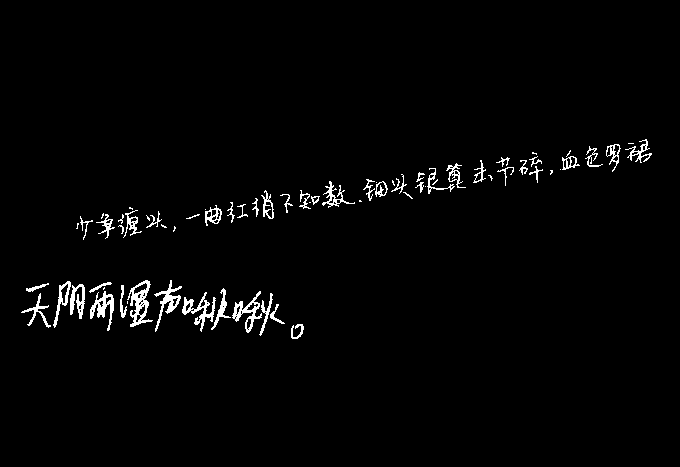 少争缠头,一曲红绡不知数.钿头银篦击节碎,血色罗裙
天阴雨湿声啾啾。